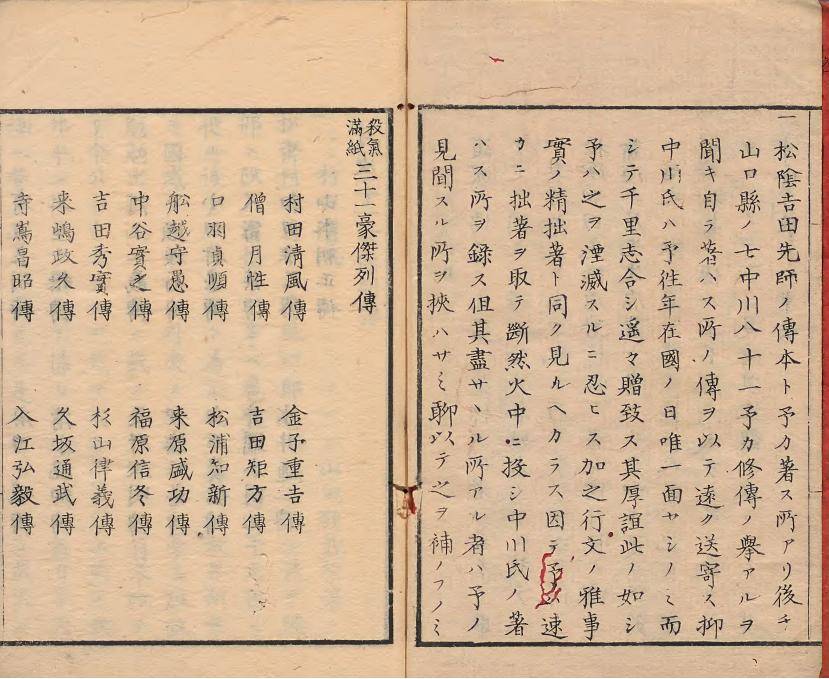 一松陰吉田先師ノ傳本ト予カ著ス所アリ後チ
山口縣ノ士中川八十一予カ修傳ノ擧アルヲ
聞キ自ラ著ハス所ノ傳ヲ以テ遠ク送寄ス抑
中川氏ハ予徃年在國ノ日唯一面セシノミ而
シテ千里志合シ遥々贈致ス其厚誼此ノ如シ
予ハ之ヲ湮滅スルニ忍ヒス加之行文ノ雅事
實ノ精拙著ト同ク見ルヘカラス因テ予速
カニ拙著ヲ取テ斷然火中ニ投シ中川氏ノ著
ハス所ヲ錄ス但其盡サヽル所アル者ハ予ノ
見聞スル所ヲ挾ハサミ聊以テ之ヲ補ノフノミ
殺氣滿紙三十一豪傑列傳
村田清風傳 金子重吉傳
僧月性傳 吉田矩方傳
口羽順傳 松浦知新傳
舩越守愚傳 来原盛功傳
中谷實之傳 福原信冬傳
吉田秀實傳 杉山律義傳
来嶋政久傳 久坂通武傳
寺嶌昌昭傳 入江弘毅傳